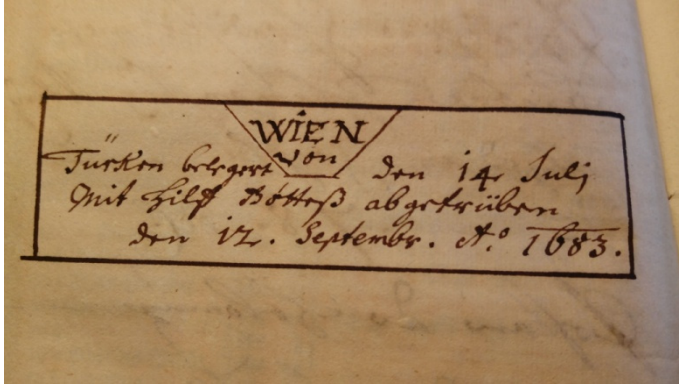 WIEN
von
Türcken belegert den 14 Julij
Mit hilff Gotteß abgetrüben
den 12. Septembr. Aº. 1683.